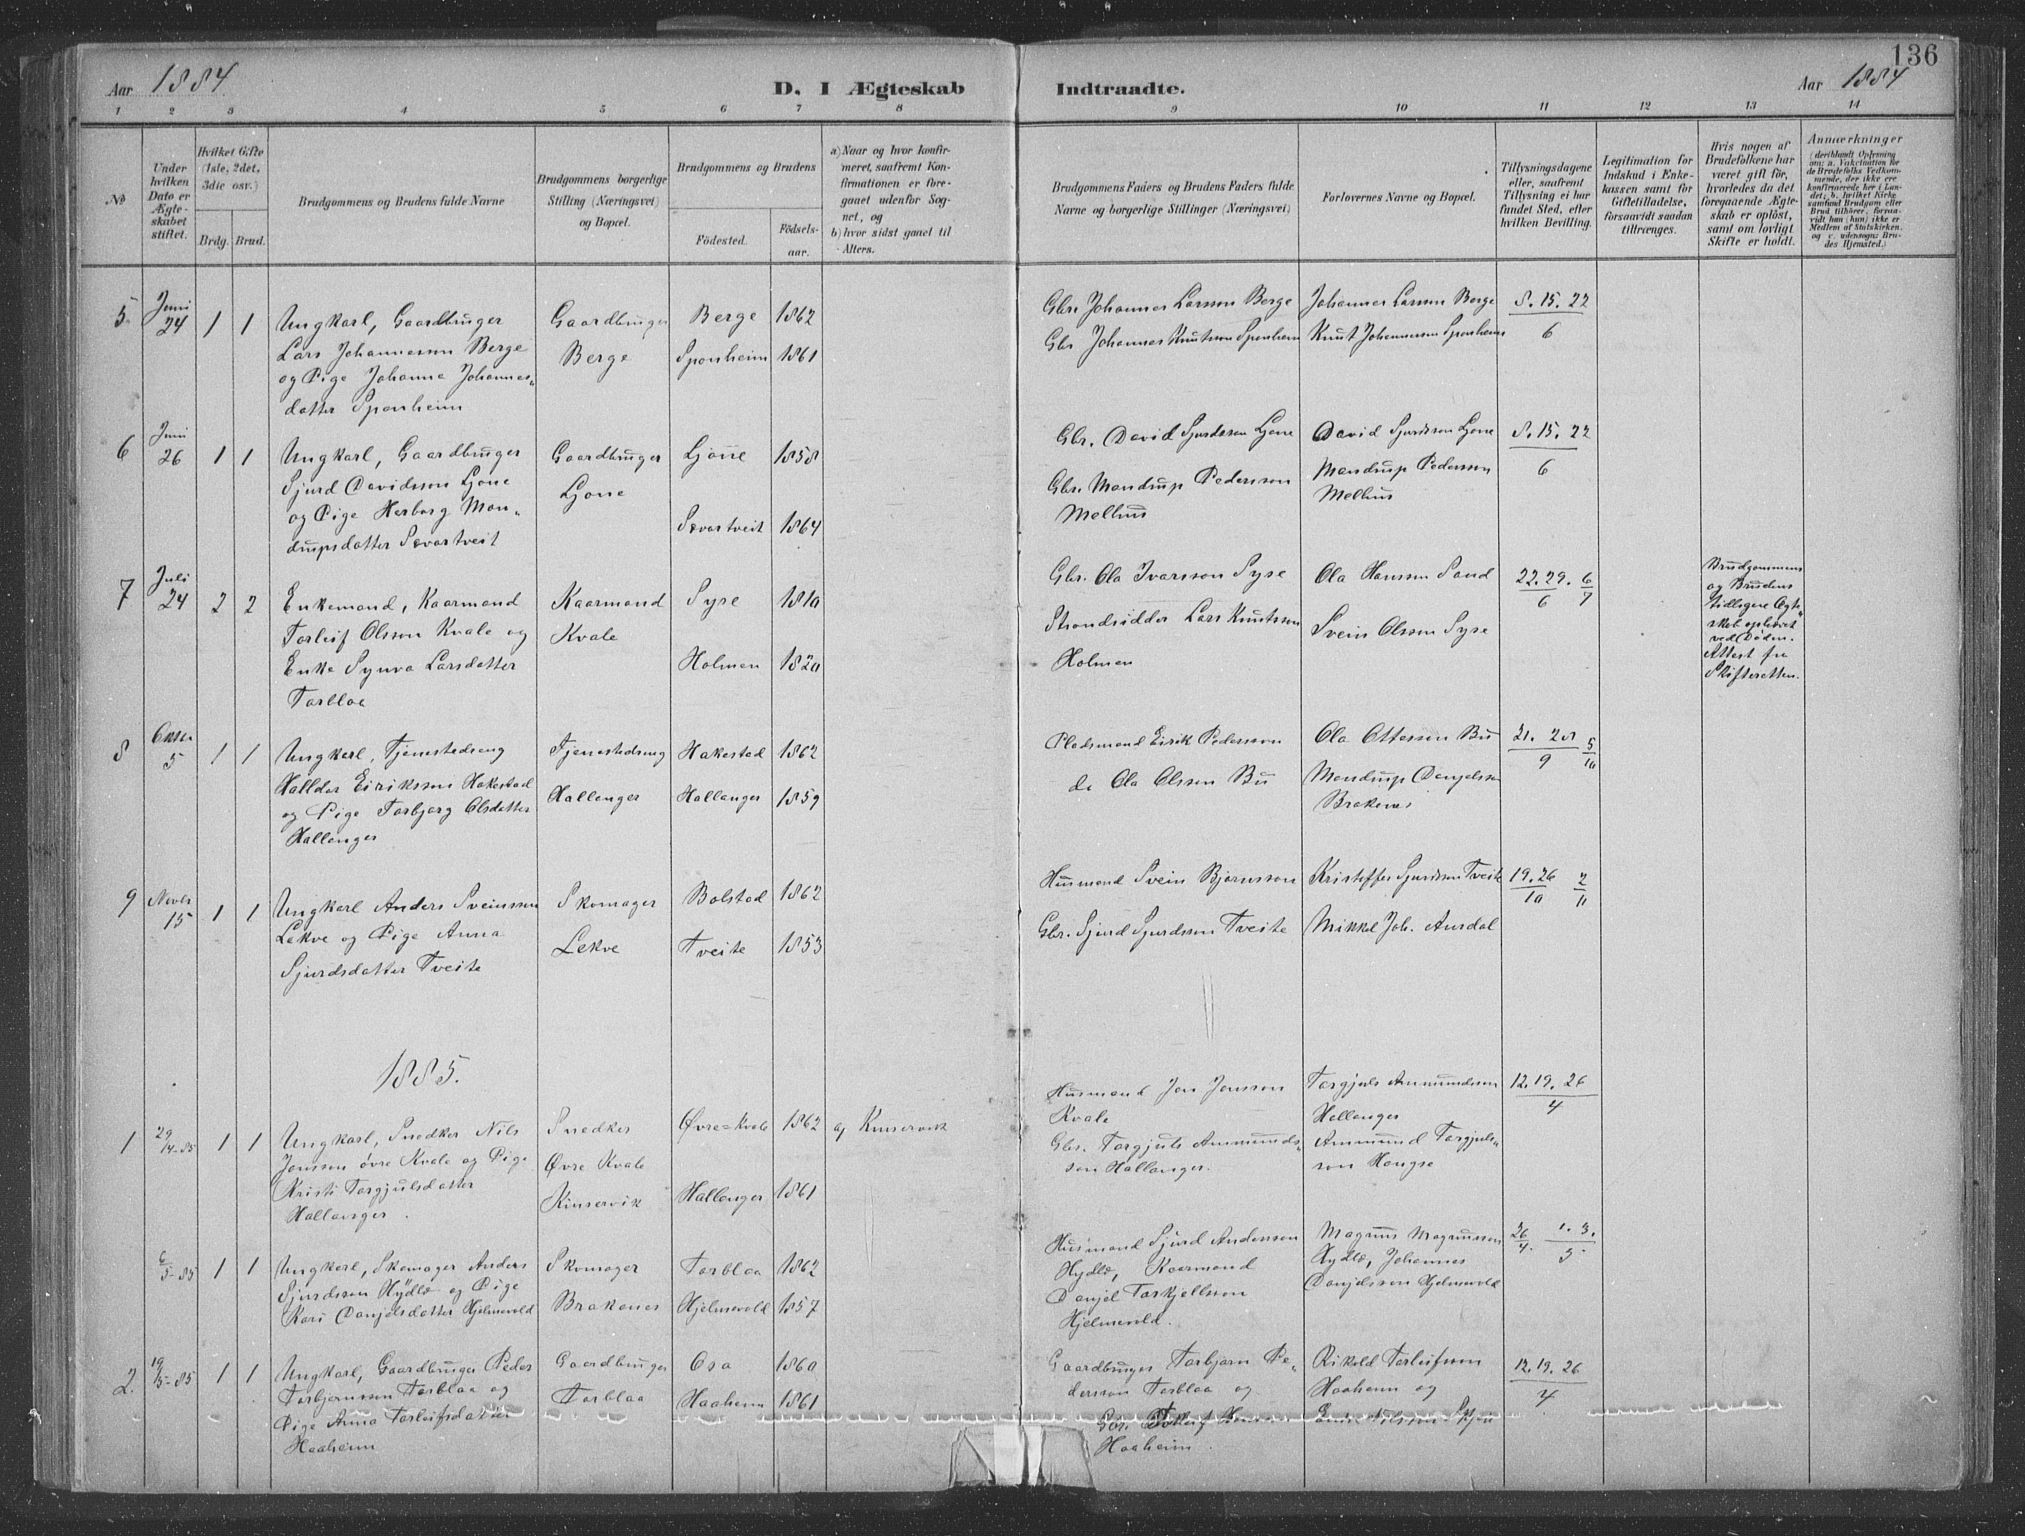 136
Aar 1884
D. I Ægteskab
Indtraadte.
Aar 1884
1 2 3 4 5 6 7 8 9 10 11 12 13 14
No
Under hvilken Dato er Ægteskabet stiftet.
Hvilket Gifte (1ste, 2det, 3die osv.)
Brdg. Brud.
Brudgommens og Brudens fulde Navne
Brudgommens borgerlige Stilling (Næringsvei) og Bopæl.
Brudgommens og Brudens
Födested.
Födselsaar.
a) Naar og hvor konfirmeret, saafremt Konfirmationen er foregaaet udenfor Sognet, og
b) hvor sidst gaaet til Alters.
Brudgommens Faders og Brudens Faders fulde Navne og borgerlige Stillinger (Næringsvei)
Forlovernes Navne og Bopæl.
Tillysningsdagene eller, saafremt Tillysning ei har fundet Sted, efter hvilken Bevilling.
Legitimation for Indskud i Enkekassen samt for Giftetilladelse, forsaavidt saadan tiltrænges.
Hvis nogen af Brudefolkene har været gift før, hvorledes da det foregaaende Ægteskab er opløst, samt om lovligt Skifte er holdt.
Anmærkninger
5 Juni 24 1 1
Ungkarl, Gaardbruger
Lars Johannesson Berge
og Pige Johanna Johannes-
datter Sponheim
Gaardbruger
Berge
Berge 1862
Sponheim 1861
Gbr. Johannes Larsson Berge
Gbr Johannes Knutsson Sponheim
Johannes Larsson Berge
Knut Johannesson Sponheim
8. 15. 22
6
6 Juni 26 1 1
Ungkarl, Gaardbruger
Sjurd Davidsson Ljone
og Pige Herborg Mon-
dupsdatter Sævartveit
Gaardbruger
Ljone
Ljone 1858
Sævartveit 1864
Gbr. David Sjurdsson Ljone
Gbr. Mandrup Pedersson
Melhus
David Sjurdsson Ljone
Mandrup Pedersson
Melhus
8. 15. 22
6
7 Juli 24 2 2
Enkemand, Kaarmand
Torleif Olsson Kvale og
Enke Synva Larsdatter
Torblaa
Kaarmand
Kvale
Syse 1810
Holmen 1820
Gbr. Ola Ivarsson Syse
Strandsidder Lars Knutsson
Holmen
Ola Hanssen Sand
Svein Olsson Syse
22. 29. 6
6 7
Brudgommens
og Brudens
tidligere Ægte-
skab ophævet
ved Døden.
Attest fra
Skifteretten.
8 5 1 1
Ungkarl, Tjenestedreng
Halldor Eiriksson Hakestad
og Pige Torbjørg Olsdatter
Hallanger
Tjenestedreng
Hallanger
Hakestad 1862
Hallanger 1859
Pladsmand Eirik Pedersson
do Ola Olsson Bu
Ola Ottesson Bu
Mandrup Danjelsson
Brakenes
21. 28 5
9 10
9 Novbr 15 1 1
Ungkarl Anders Sveinsson
Lekve og Pige Anna
Sjurdsdatter Tveite
Skomager
Lekve
Bolstad 1862
Tveite 1853
Husmand Svein Bjørnsson
Gbr. Sjurd Sjurdsson Tveite
Kristoffer Sjurdsson Tveite
Mikkel Joh. Aurdal
19. 26 2
10 11
1885.
1 29/4-85 1 1
Ungkarl, Snedker Nils
Jonsson øvre Kvale og Pige
Kristi Torgjulsdatter
Hallanger.
Snedker
Øvre Kvale
Kinservik
Øvre=Kvale 1862
Hallanger 1861
a) Kinservik
Husmand Jon Jonsson
Kvale
Gbr. Torgjuls Ammunds-
son Hallanger.
Torgjuls Ammundsson
Hallanger
Ammund Torgjuls-
son Haugse
12. 19. 26
4
6/5-85 1 1
Ungkarl, Skomager Anders
Sjurdsson Hydle og Pige
Kari Danjelsdatter Hjelmevold
Skomager
Brakenes
Torblaa 1862
Hjelmevold 1857
Husmand Sjurd Andersson
Hydle, Kaarmand
Danjel Torkjellsson
Hjelmevold.
Magnus Magnusson
Hydle, Johannes
Danjelsson Hjelmevold
26 1. 3.
4. 5
2. 19/5-85 1 1
Ungkarl, Gaardbruger Peder
Torbjørnsson Torblaa og
Pige Anna Torleifsdatter
Haaheim
Gaardbruger
Torblaa
Osa 1860
Haaheim 1861
Gaardbruger Torbjørn Pe-
dersson Torblaa og
Gbr.
Haaheim.
Rikold Torleifsson
Haaheim og
12. 19. 26
4